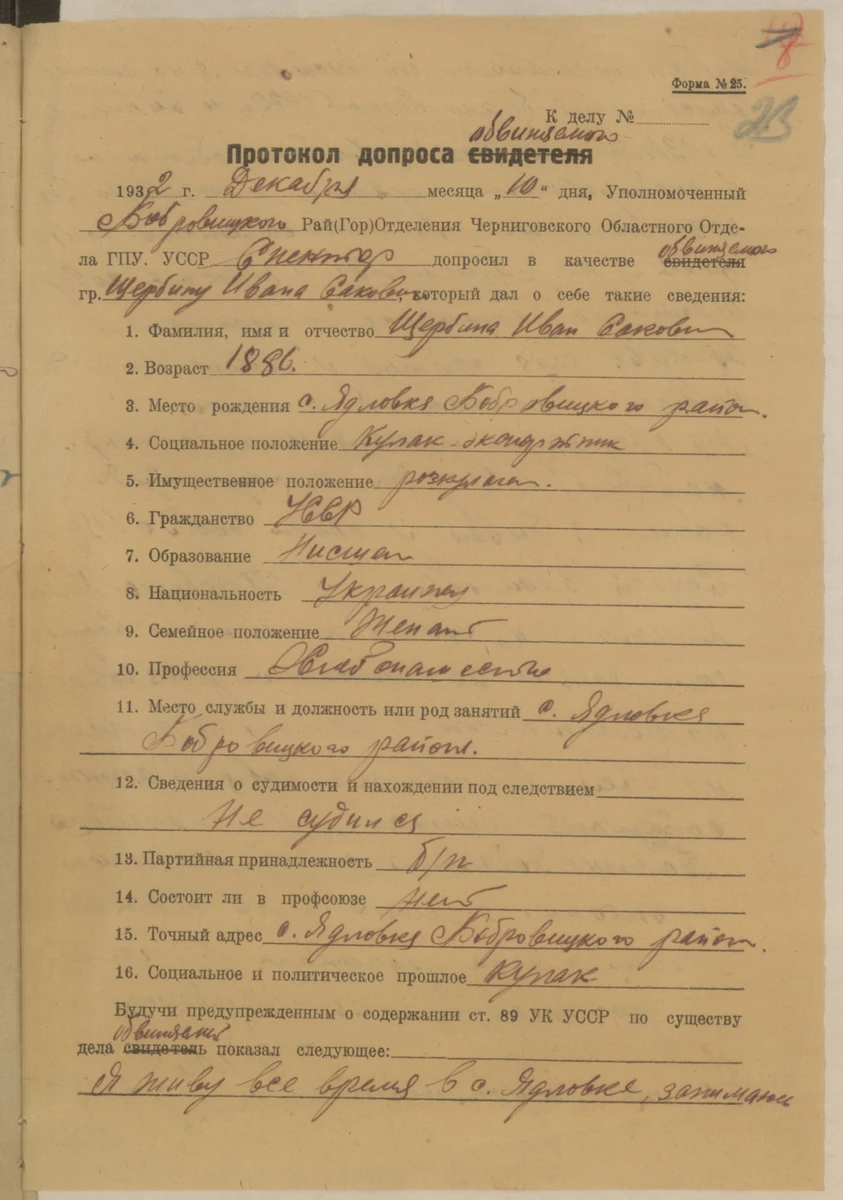 8
Форма № 25.
23
К делу №
обвиняемого
Протокол допроса свидетеля
1932 г. Декабря месяца „10“ дня, Уполномоченный
Бобровицкого Рай(Гор)Отделения Черниговского Областного Отде-
ла ГПУ. УССР Спектор допросил в качестве свидетеля обвиняемого
гр. Щербину Ивана Саковича, который дал о себе такие сведения:
1. Фамилия, имя и отчество Щербина Иван Сакович
2. Возраст 1886.
3. Место рождения с. Ядловка Бобровицкого район.
4. Социальное положение Кулак-
5. Имущественное положение розкулачен.
6. Гражданство УССР
7. Образование Нисшее
8. Национальность Украинец
9. Семейное положение Женат
10. Профессия Хлебопашество
11. Место службы и должность или род занятий с. Ядловка
Бобровицкого района.
12. Сведения о судимости и нахождении под следствием
Не судился
13. Партийная принадлежность б/п
14. Состоит ли в профсоюзе нет
15. Точный адрес с. Ядловка Бобровицкого район.
16. Социальное и политическое прошлое Кулак
Будучи предупрежденным о содержании ст. 89 УК УССР по существу
обвиняемый
дела свидетель показал следующее:
Я живу все время в с. Ядловке, занимаюсь